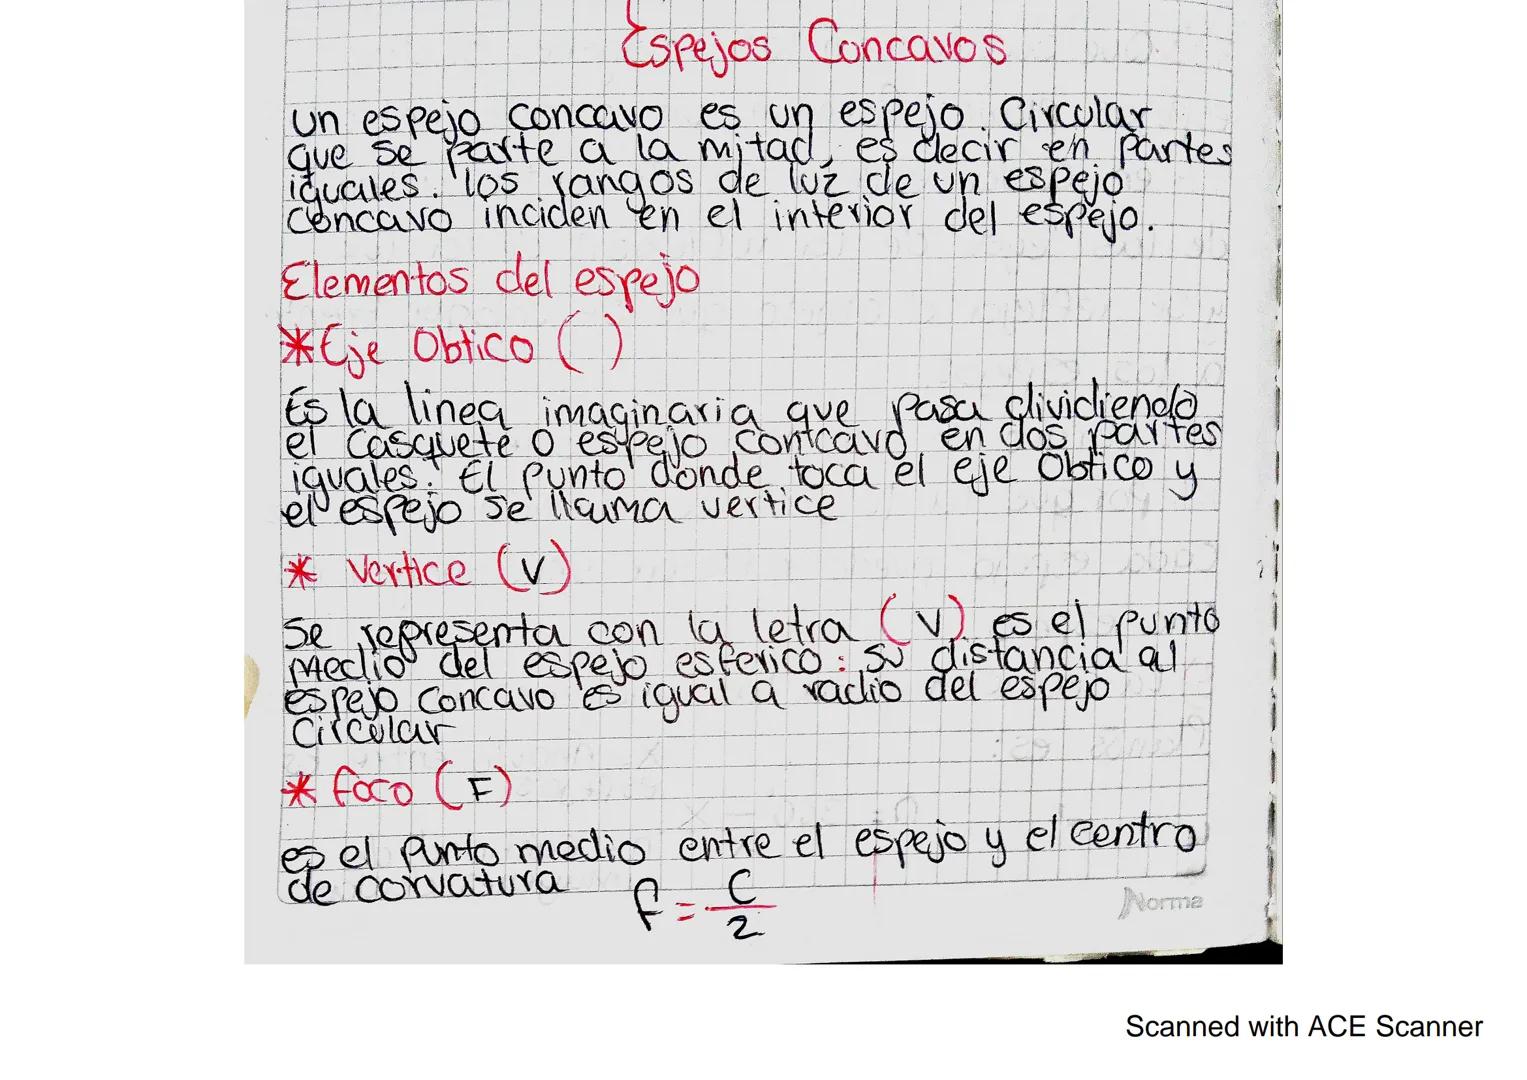 Espejos Concavos
un espejo concavo es un espejo Circular
que se parte a la mitad, es decir en partes
iguales. los rangos de luz de un espejo
concavo inciden en el interior del espejo.
Elementos del espejo
*Eje Obtico ( )
Es la linea imaginaria que pasa dividiendo
el casquete o espejo contcavo en dos partes
iguales. El punto donde toca el eje Obtico y
el espejo se llama vertice
* Vertice (V)
Se representa con la letra (V) es el punto
Medio del espejo esferico: su distancia al
espejo concavo es igual a radio del espejo
Circular
* foco (F)
es el punto medio entre el espejo y el centro
de corvatura f = C/2
Norma
Scanned with ACE Scanner